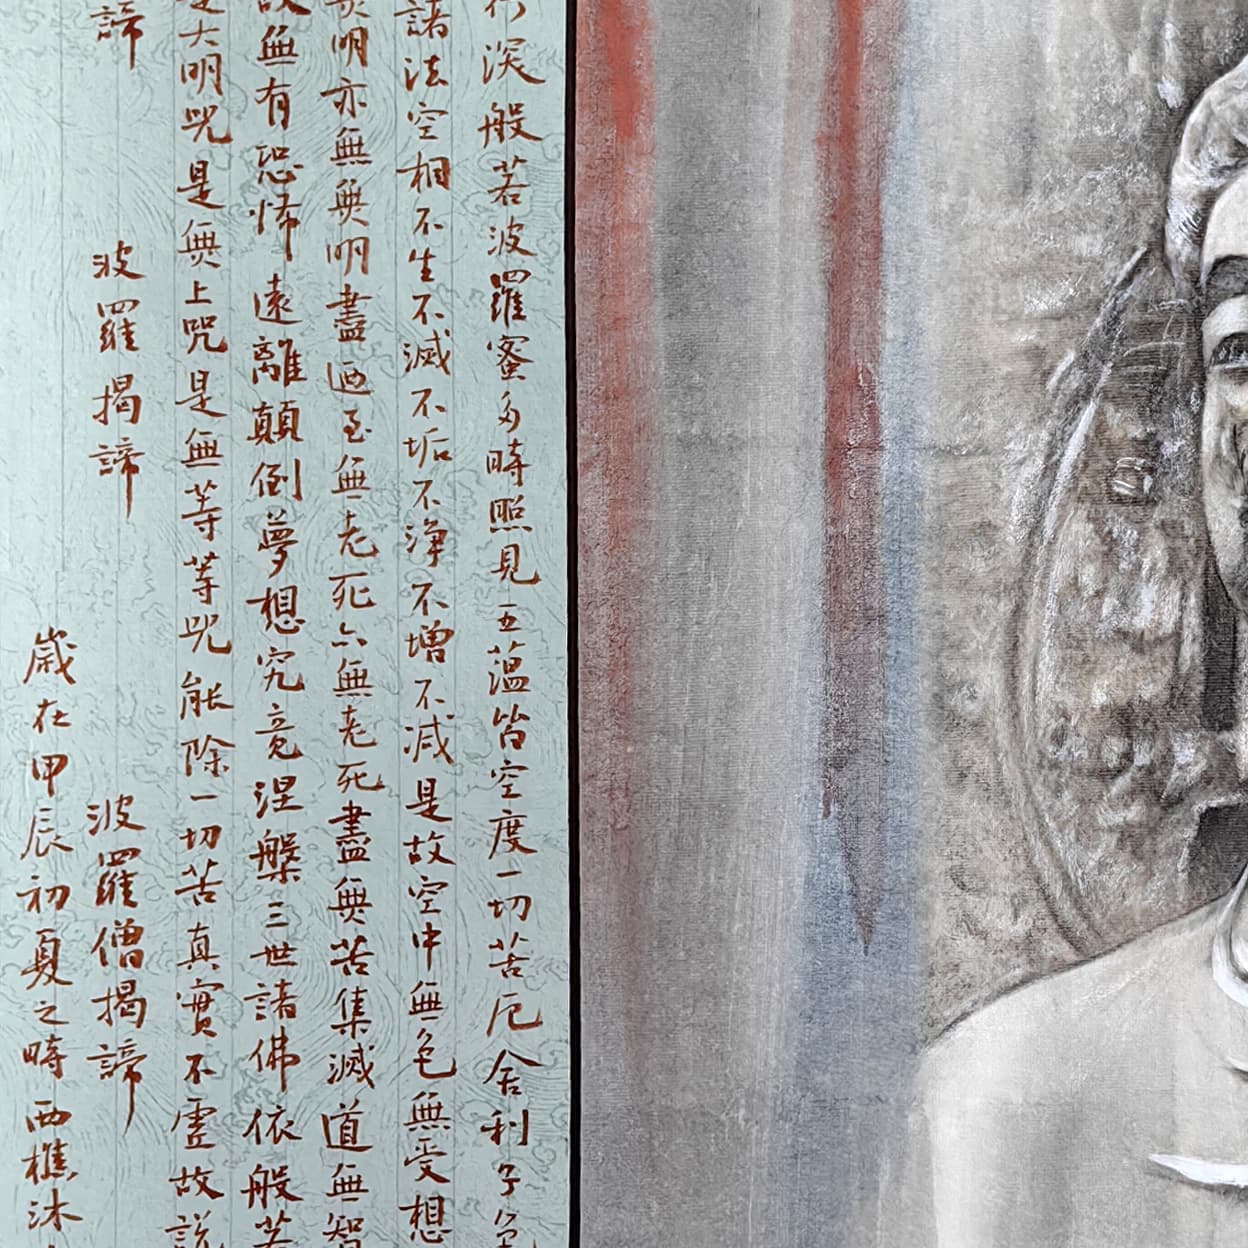 行深般若波羅蜜多時照見五蘊皆空度一切苦厄舍利子色
諸法空相不生不滅不垢不淨不增不減是故空中無色無受想
無明亦無無明盡迺至無老死亦無老死盡無苦集滅道無智
故無有恐怖遠離顛倒夢想究竟涅槃三世諸佛依般若
是大明咒是無上咒是無等等咒能除一切苦真實不虛故説
諦 波羅揭諦 波羅僧揭諦
歲在甲辰初夏之時西樵沐